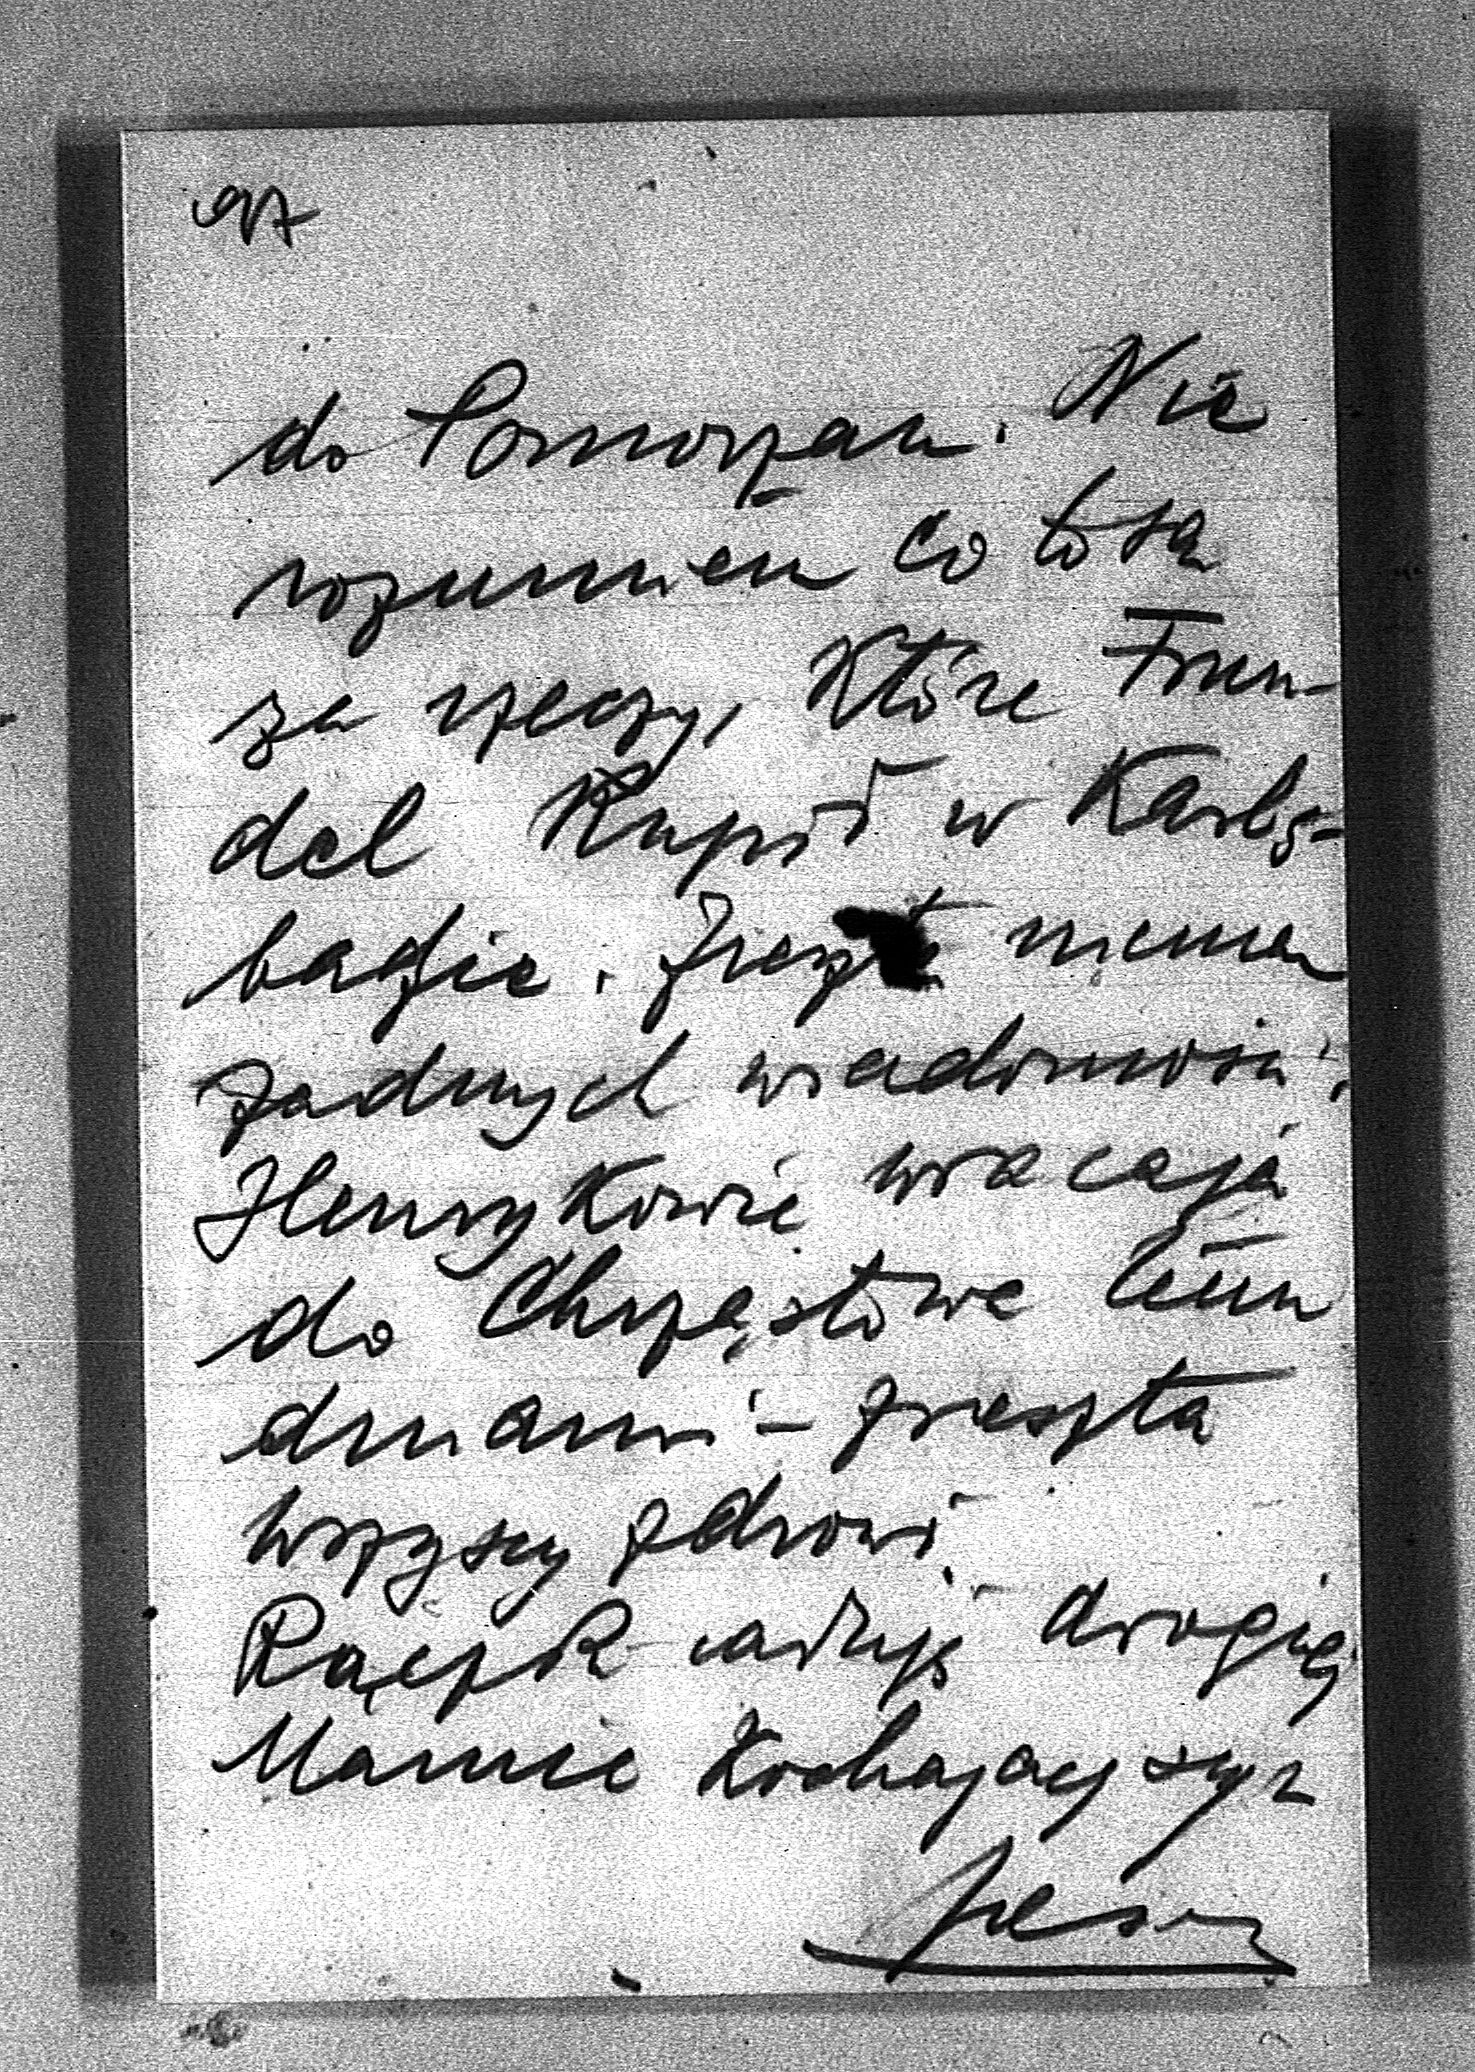 97
do Pomorzan. Nie
rozumiem co to są
za rzeczy, które Fren-
del Kupił w Karlsz-
badzie. Zreszt niema
żadnych wiadomości.
Henrykowie wracają
do Chrząstowa temi
dniami – zresztą
wszyscy zdrowi
Rączki całuję drogiej
Mamie kochający syn